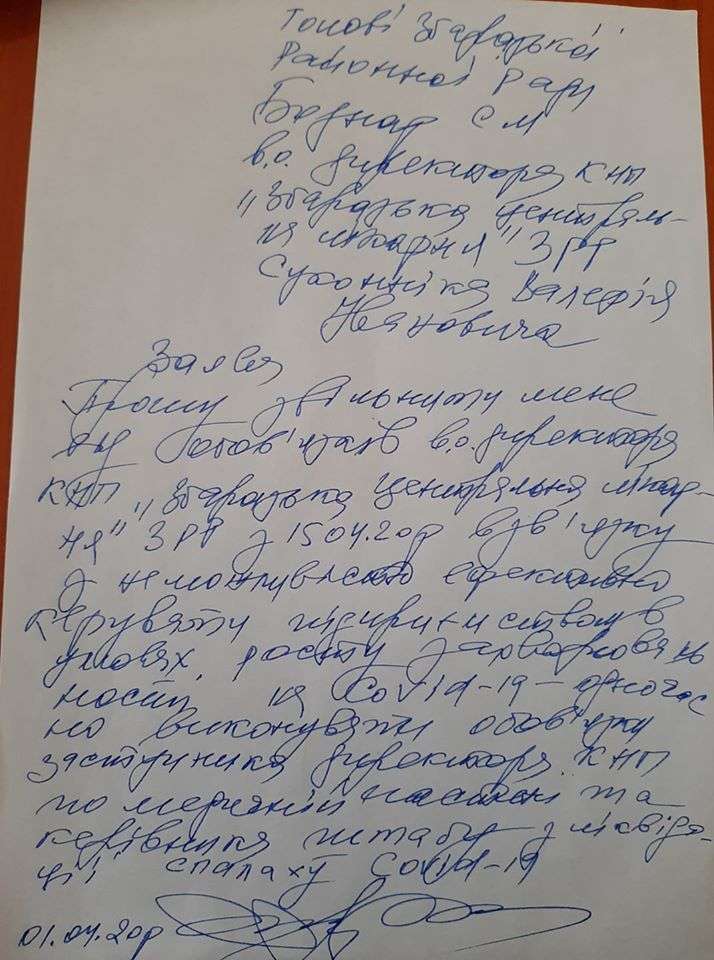 Голові Збаразької
Районної Ради
Боднар С М
в.о. директора КНП
"Збаразька централь-
на лікарня" ЗРР
Сухонніка Валерія
Івановича
Заява
Прошу звільнити мене
від обов'язків в.о. директора
КНП "Збаразька центральна лікар-
ня" ЗРР з 15.04.20р в зв'язку
з неможливістю ефективно
керувати підприємством в
умовах росту захворювань
ності на Covid-19 – одночас
но виконувати обов'язки
заступника директора КНП
по медичній частині та
керівника штабу з ліквіда-
ції спалаху Covid-19
01.04.20р